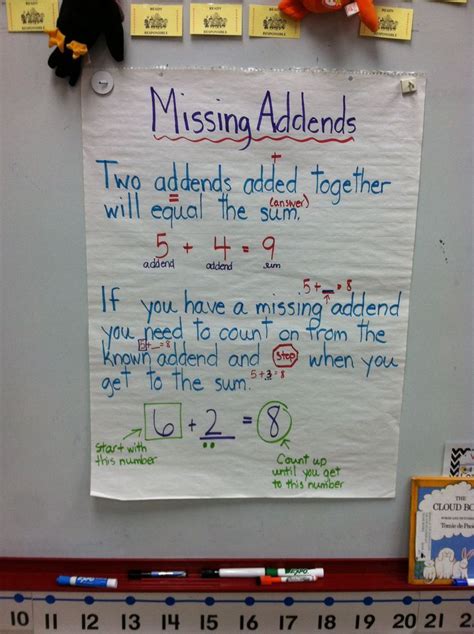 READY
RESPONSIBLE
READY
RESPONSIBLE
READY
RESPONSIBLE
Missing Addends
+
Two addends added together
= (answer)
will equal the sum.
5 + 4 = 9
addend addend sum
5 + _ = 8
If you have a missing addend
you need to count on from the
5 + _ = 8
known addend and STOP when you
get to the sum. 5 + 3 = 8
6 + 2 = 8
Start with
this number
Count up
until you get
to this number
THE
CLOUD BO
Tomie de Pao
EXPO
EXPO
10 11 12 13 14 15 16 17 18 19 20 21